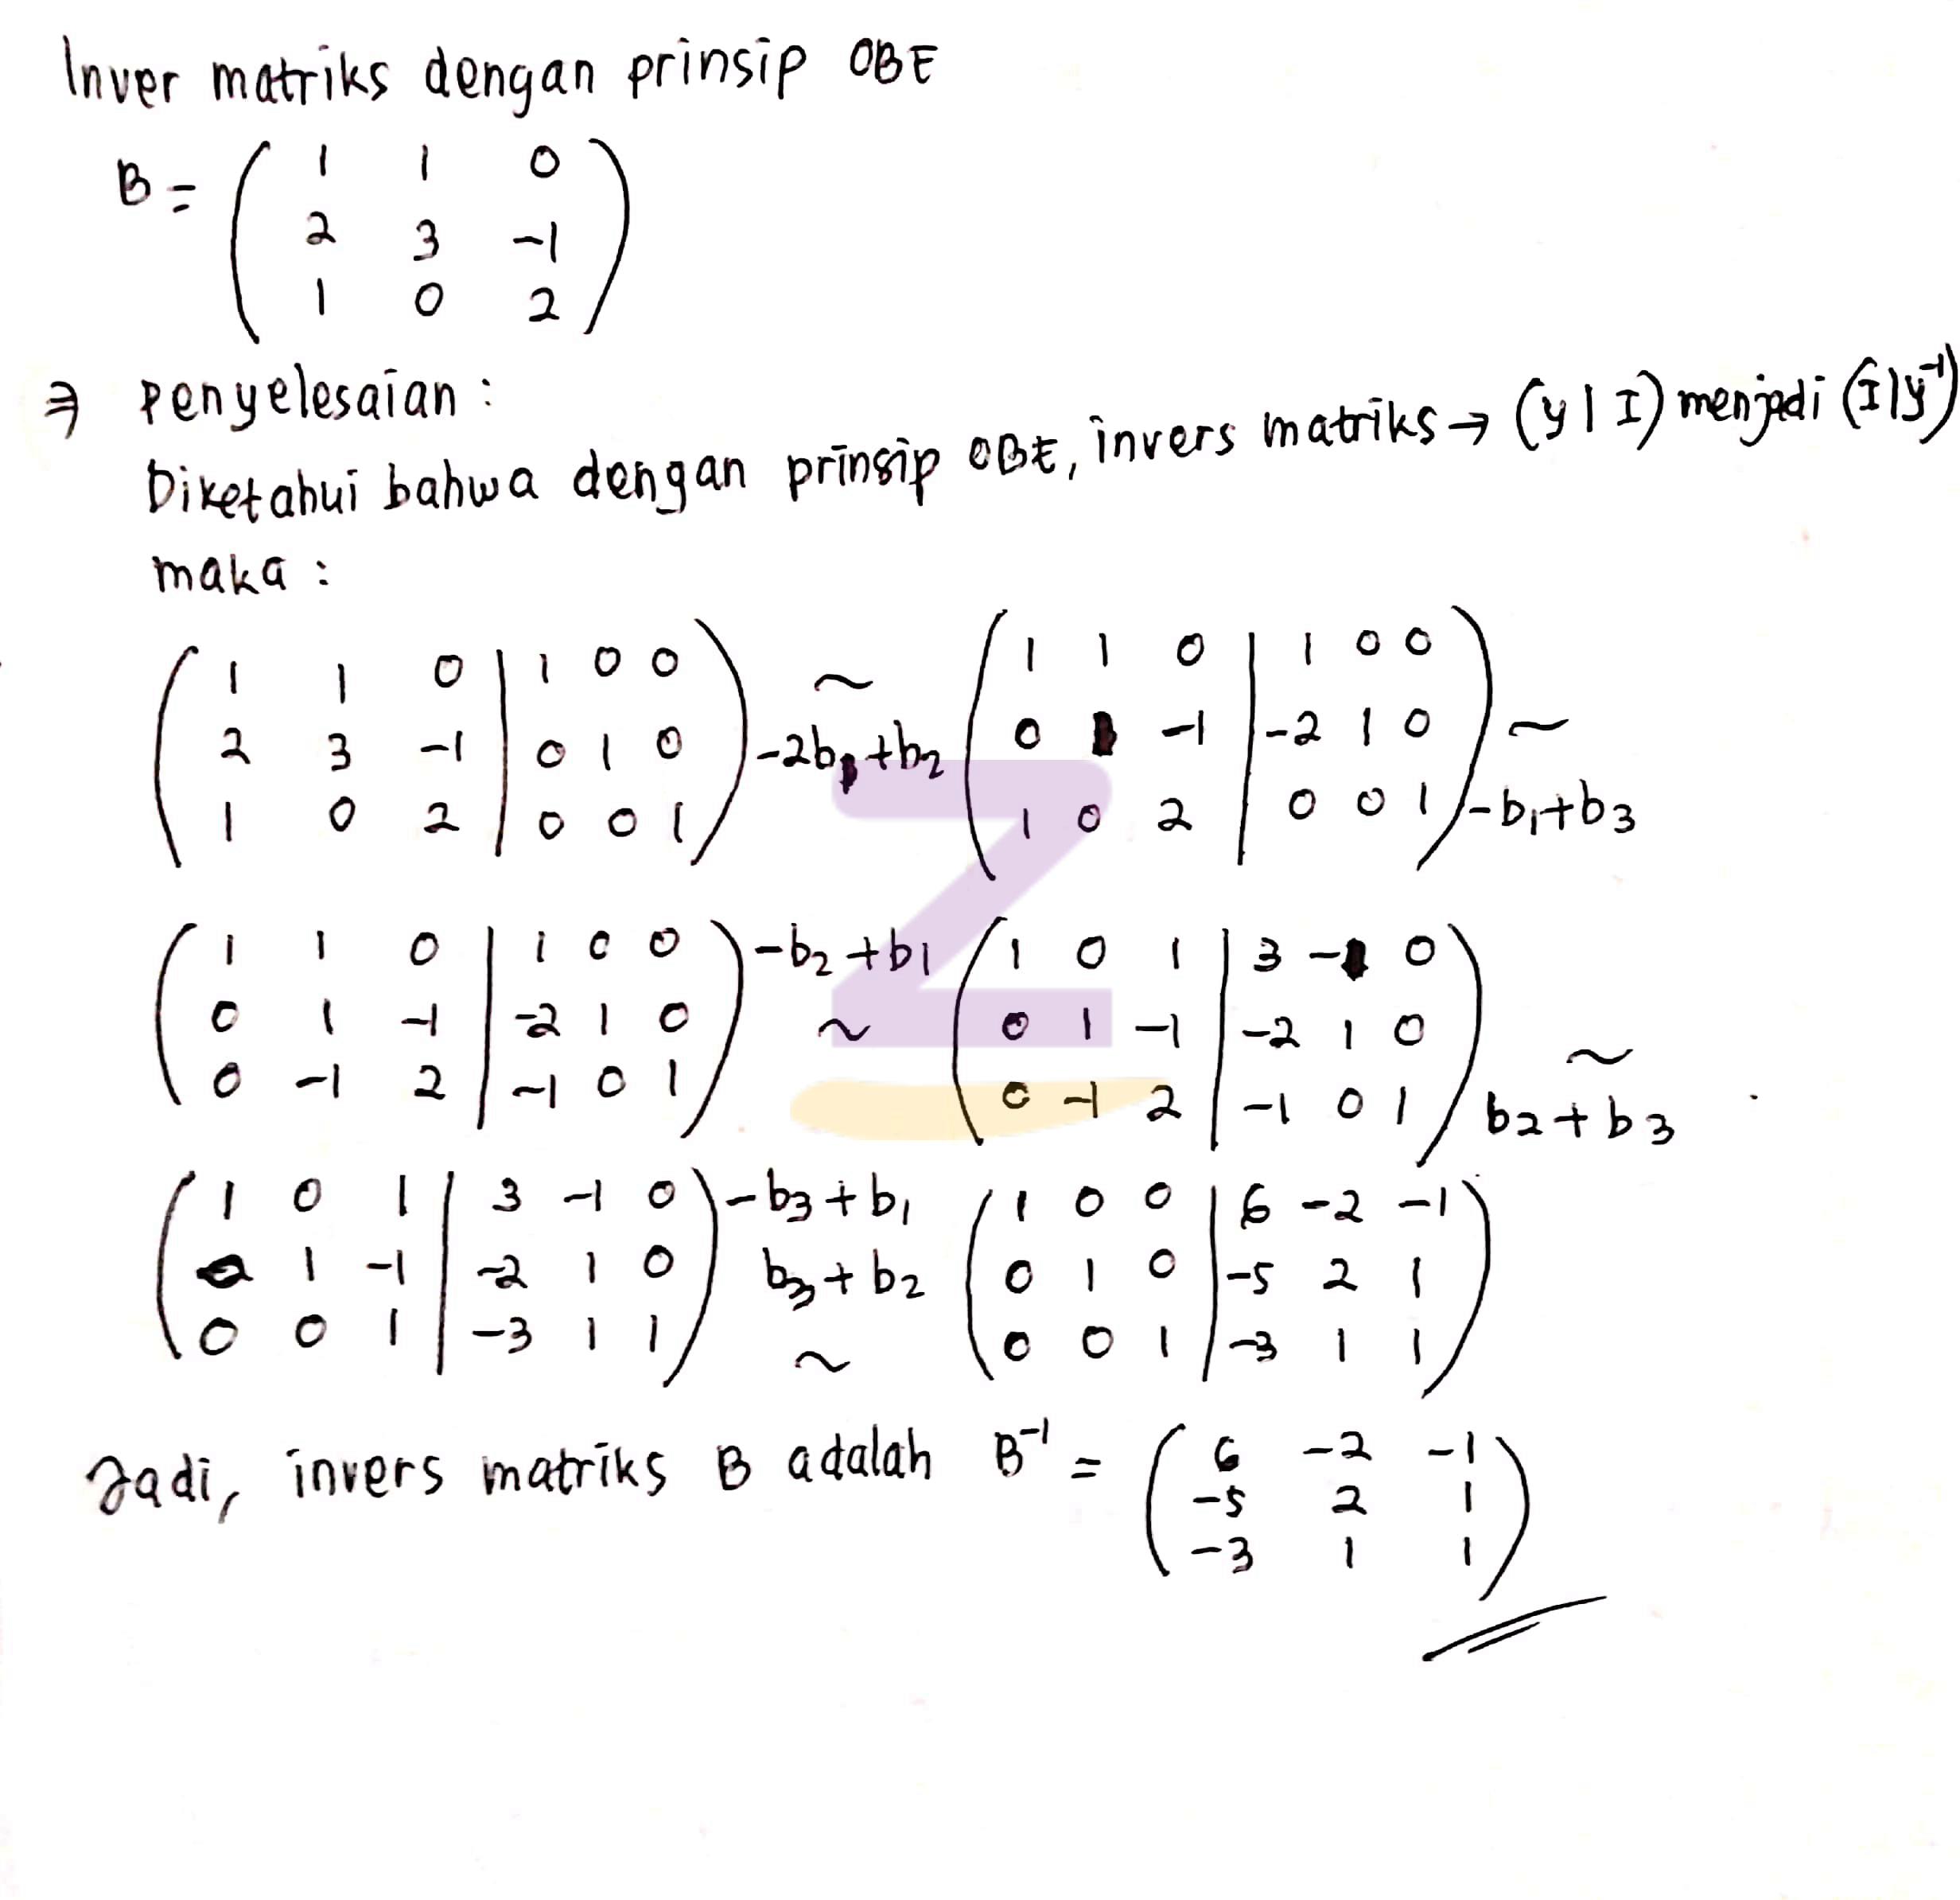 Inver matriks dengan prinsip OBE
B = ( 1 1 0
2 3 -1
1 0 2 )
⇒ Penyelesaian :
Diketahui bahwa dengan prinsip OBE, invers matriks → (y | I) menjadi (I | y⁻¹)
maka :
( 1 1 0 | 1 0 0 ) ~ ( 1 1 0 | 1 0 0 )
( 2 3 -1 | 0 1 0 ) -2b1+b2 ( 0 1 -1 | -2 1 0 ) ~
( 1 0 2 | 0 0 1 ) ( 1 0 2 | 0 0 1 ) -b1+b3
( 1 1 0 | 1 0 0 ) -b2+b1 ( 1 0 1 | 3 -1 0 )
( 0 1 -1 | -2 1 0 ) ~ ( 0 1 -1 | -2 1 0 ) ~
( 0 -1 2 | -1 0 1 ) ( 0 -1 2 | -1 0 1 ) b2+b3
( 1 0 1 | 3 -1 0 ) -b3+b1 ( 1 0 0 | 6 -2 -1 )
( 0 1 -1 | -2 1 0 ) b3+b2 ( 0 1 0 | -5 2 1 )
( 0 0 1 | -3 1 1 ) ~ ( 0 0 1 | -3 1 1 )
Jadi, invers matriks B adalah B⁻¹ = ( 6 -2 -1
-5 2 1
-3 1 1 )
Z